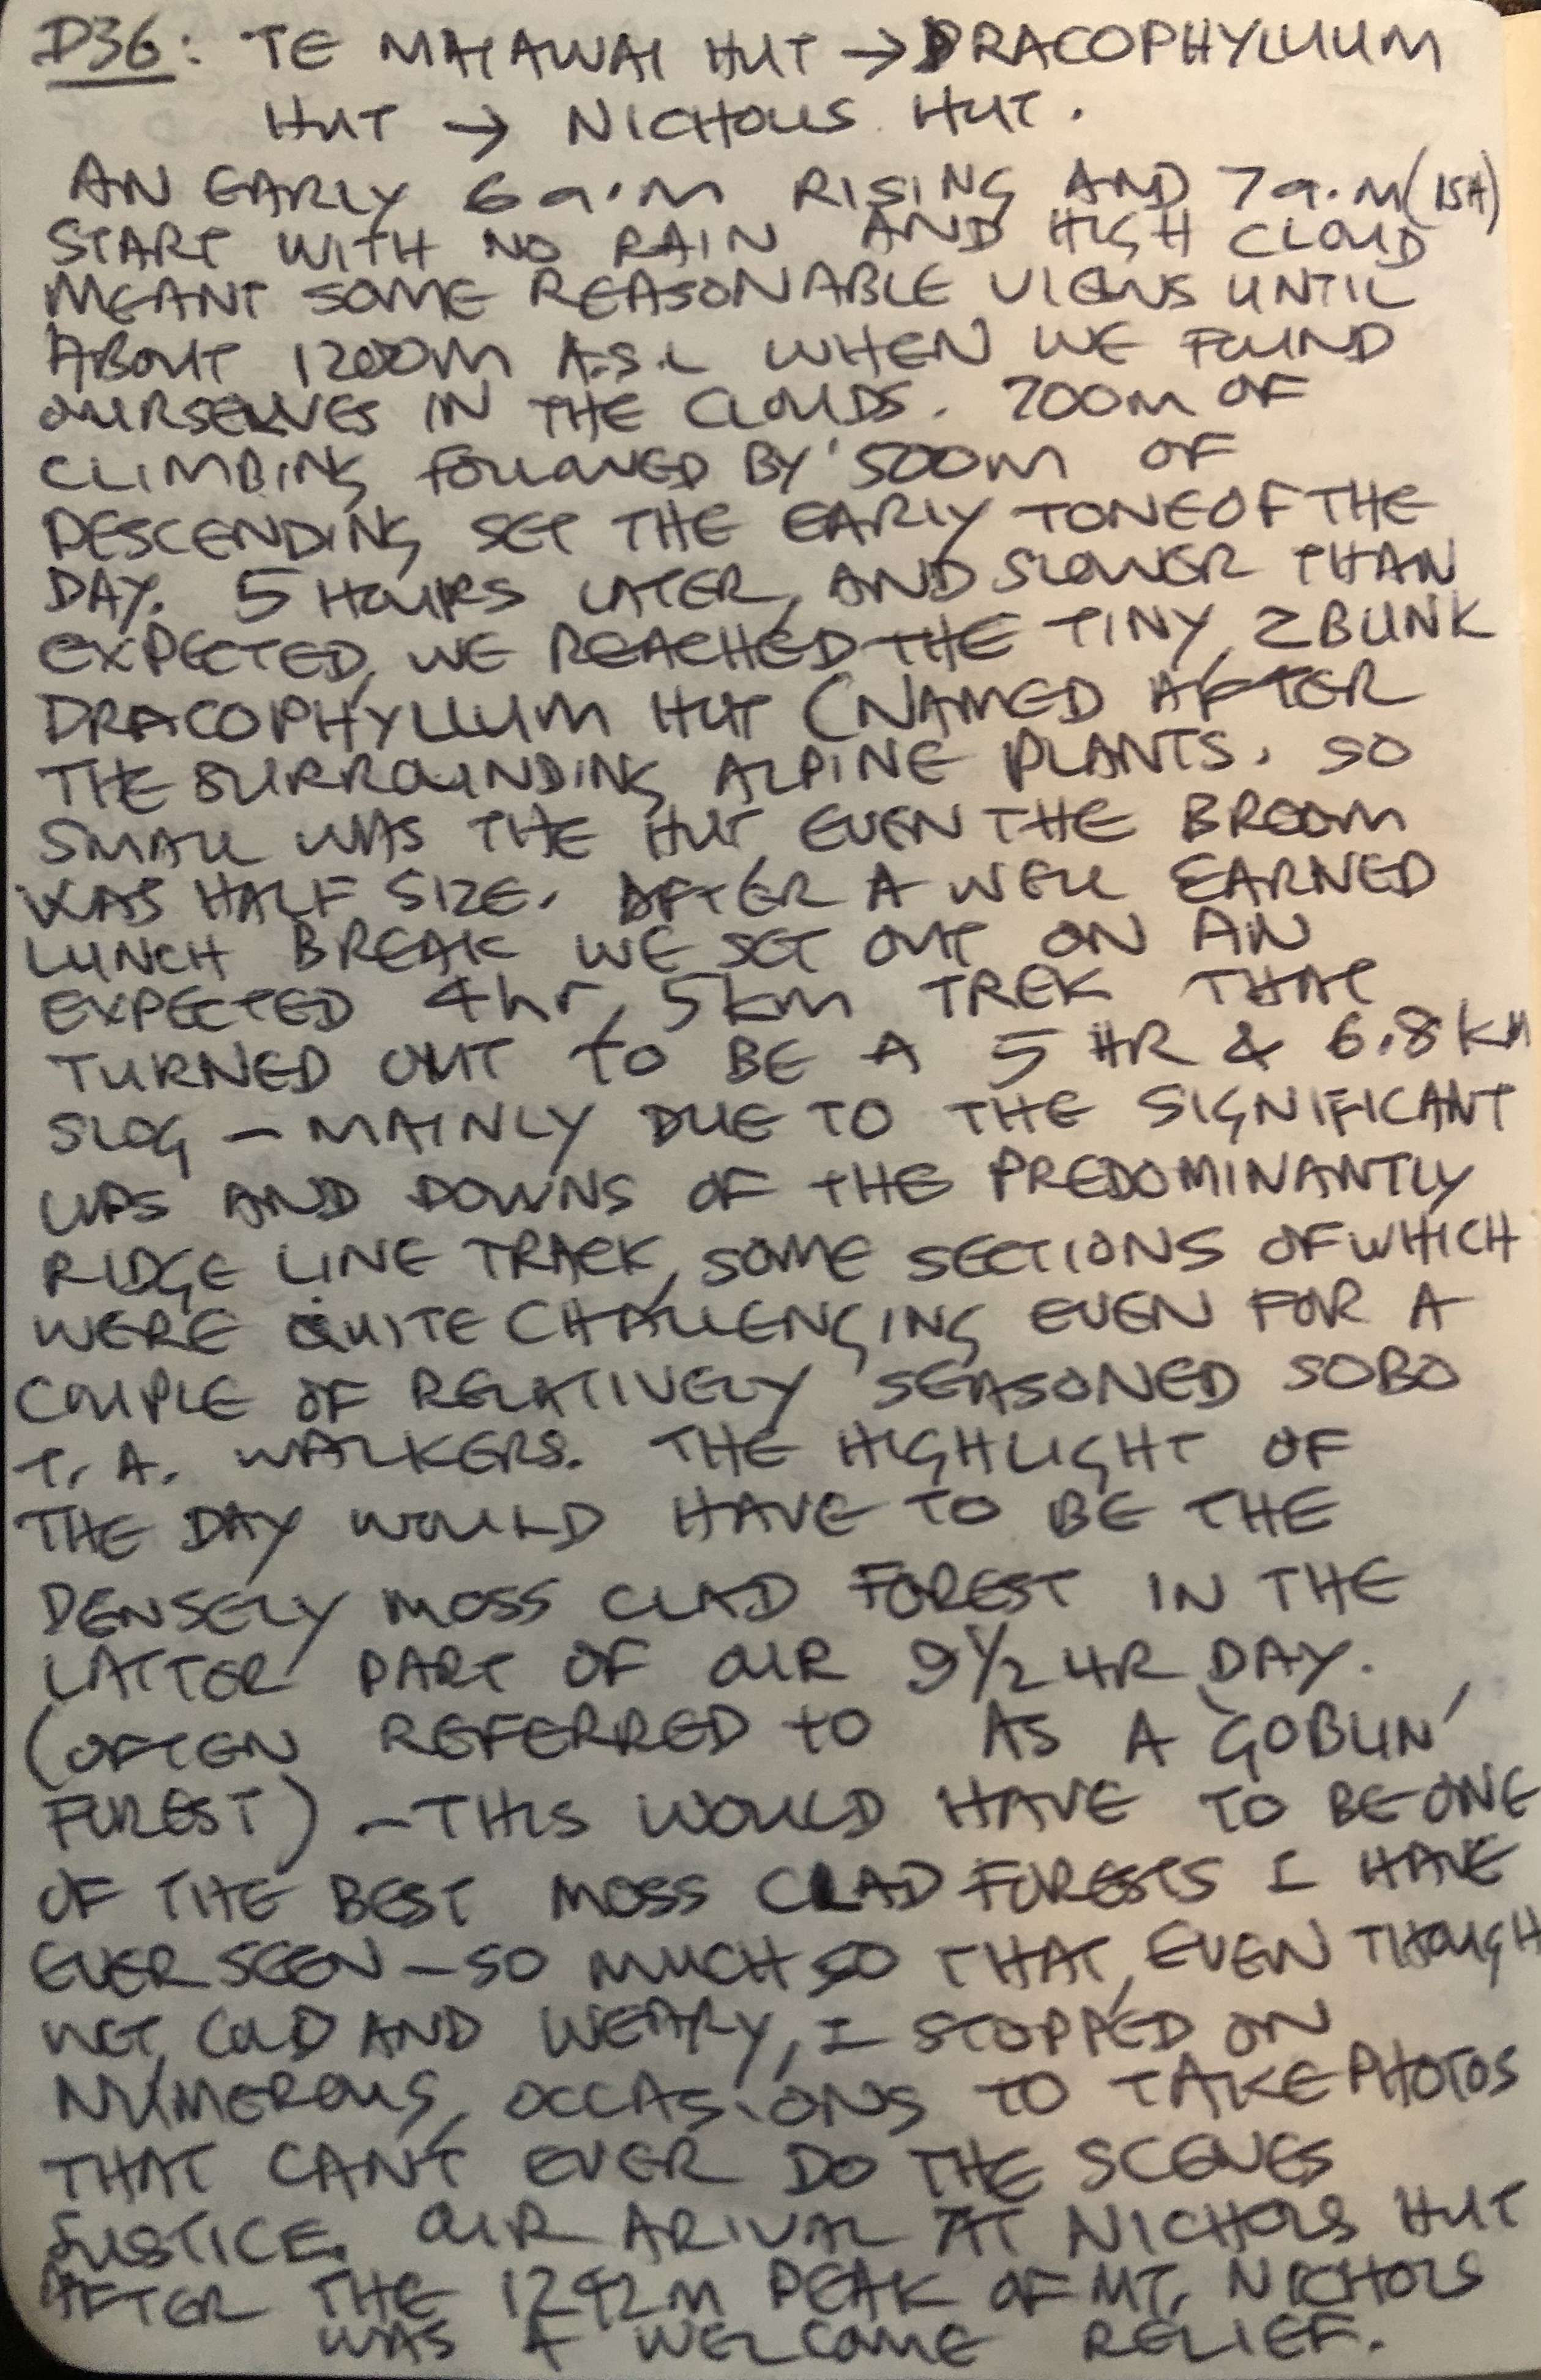 D36: TE MATAWAI HUT → DRACOPHYLLUM
HUT → NICHOLLS HUT.
AN EARLY 6a.m RISING AND 7a.m(ISH)
START WITH NO RAIN AND HIGH CLOUD
MEANT SOME REASONABLE VIEWS UNTIL
ABOUT 1200M A.S.L WHEN WE FOUND
OURSELVES IN THE CLOUDS. 700m OF
CLIMBING FOLLOWED BY 500m OF
DESCENDING SET THE EARLY TONE OF THE
DAY. 5 HOURS LATER, AND SLOWER THAN
EXPECTED, WE REACHED THE TINY, 2 BUNK
DRACOPHYLLUM HUT (NAMED AFTER
THE SURROUNDING ALPINE PLANTS. SO
SMALL WAS THE HUT, EVEN THE BROOM
WAS HALF SIZE. AFTER A WELL EARNED
LUNCH BREAK WE SET OUT ON AN
EXPECTED 4hr, 5km TREK THAT
TURNED OUT TO BE A 5 HR & 6.8KM
SLOG – MAINLY DUE TO THE SIGNIFICANT
UPS AND DOWNS OF THE PREDOMINANTLY
RIDGE LINE TRACK, SOME SECTIONS OF WHICH
WERE QUITE CHALLENGING EVEN FOR A
COUPLE OF RELATIVELY SEASONED SOBO
T.A. WALKERS. THE HIGHLIGHT OF
THE DAY WOULD HAVE TO BE THE
DENSELY MOSS CLAD FOREST IN THE
LATTER PART OF OUR 9½ HR DAY.
(OFTEN REFERRED TO AS A 'GOBLIN'
FOREST) – THIS WOULD HAVE TO BE ONE
OF THE BEST MOSS CLAD FORESTS I HAVE
EVER SEEN – SO MUCH SO THAT, EVEN THOUGH
WET, COLD AND WEARY, I STOPPED ON
NUMEROUS, OCCASIONS TO TAKE PHOTOS
THAT CAN'T EVER DO THE SCENES
JUSTICE. OUR ARIVAL AT NICHOLS HUT
AFTER THE 1242M PEAK OF MT. NICHOLS
WAS A WELCOME RELIEF.